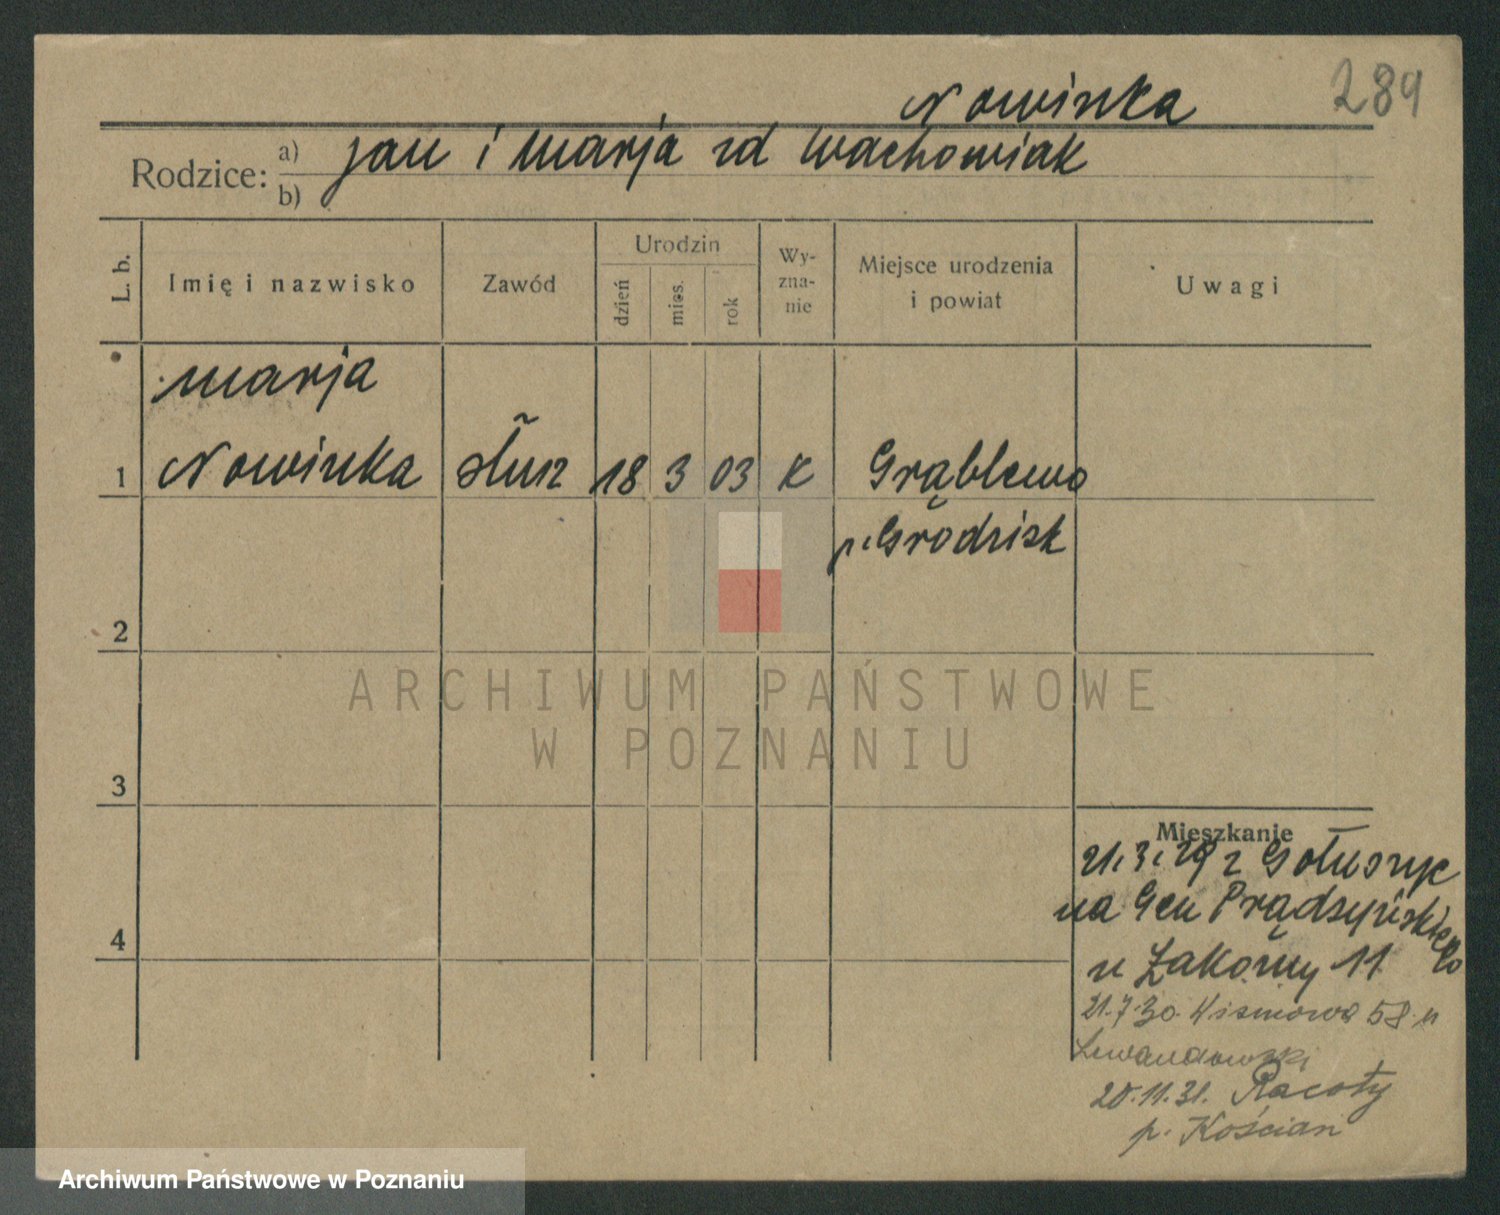 Nowinka
289
Rodzice: a) Jan i Marja zd Wachowiak
b)
L. b.
Imię i nazwisko
Zawód
Urodzin
dzień
mies.
rok
Wy-
zna-
nie
Miejsce urodzenia
i powiat
Uwagi
Marja
1 Nowinka służ 18 3 03 K Grąblewo
p. Grodzisk
2
ARCHIWUM PAŃSTWOWE
W POZNANIU
3
Mieszkanie
21.3.29 z Gołuszyc
na Gen Prądzyńskiego
u 11
21.7.30. 58 u
Lewandowski
20.11.31. Racoty
p. Kościan
4
Archiwum Państwowe w Poznaniu